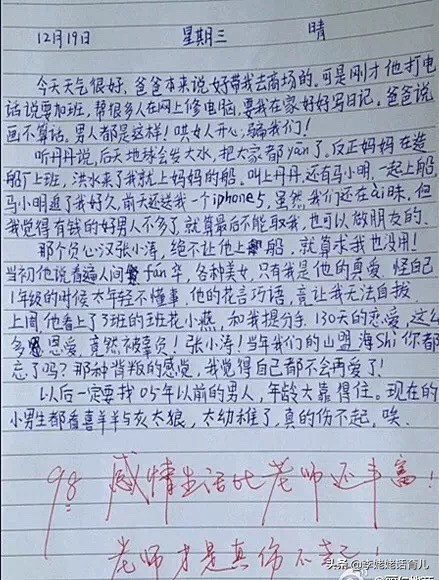 12月19日 星期三 晴
今天天气很好，爸爸本来说好带我去商场的。可是刚才他打电
话说要加班，帮很多人在网上修电脑，要我在家好好写日记。爸爸说
画不算话。男人都是这样！哄女人开心，骗我们！
听丹丹说，后天地球会发大水，把大家都yān了。反正妈妈在造
船厂上班，洪水来了我就上妈妈的船。叫上丹丹，还有马小明，一起上船，
马小明追了我好久，前天还送我一个iphone5，虽然，我们还在ài昧，但
我觉得有钱的好男人不多了，就算最后不能取我，也可以做朋友的。
那个负心汉张小涛，绝不让他上船，就算求我也没用！
当初他说看遍人间fán华，各种美女，只有我是他的真爱，怪自己
1年级的时候太年轻不懂事，他的花言巧语，竟让我无法自拔。
上周，他看上了3班的班花小燕，和我提分手，130天的恋爱，这么
多恩爱，竟然被辜负！张小涛！当年我们的山盟海Shì你都
忘了吗？那种背叛的感觉，我觉得自己都不会再爱了！
以后一定要找05年以前的男人，年龄大靠得住。现在的
小男生都看喜羊羊与灰太狼，太幼稚了，真的伤不起，唉。
98 感情生活比老师还丰富！
老师才是真伤不起
头条@李姥姥话育儿